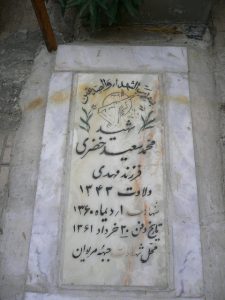 شهید
محمد سعید خضری
فرزند مهدی
ولادت ۱۳۴۲
شهادت ۱ دیماه ۱۳۶۰
تاریخ دفن ۲۰ خرداد ۱۳۶۱
محل شهادت جبهه مریوان